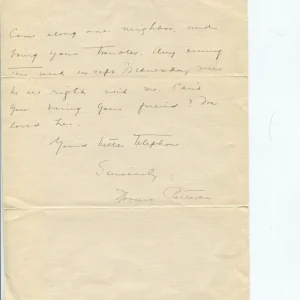 Come along one neighbor, and
bring your troubles. Any evening
this week except Wednesday will
be all right with me. Can't
you bring your friend? I've
loved her.
You'd better telephone
Sincerely,